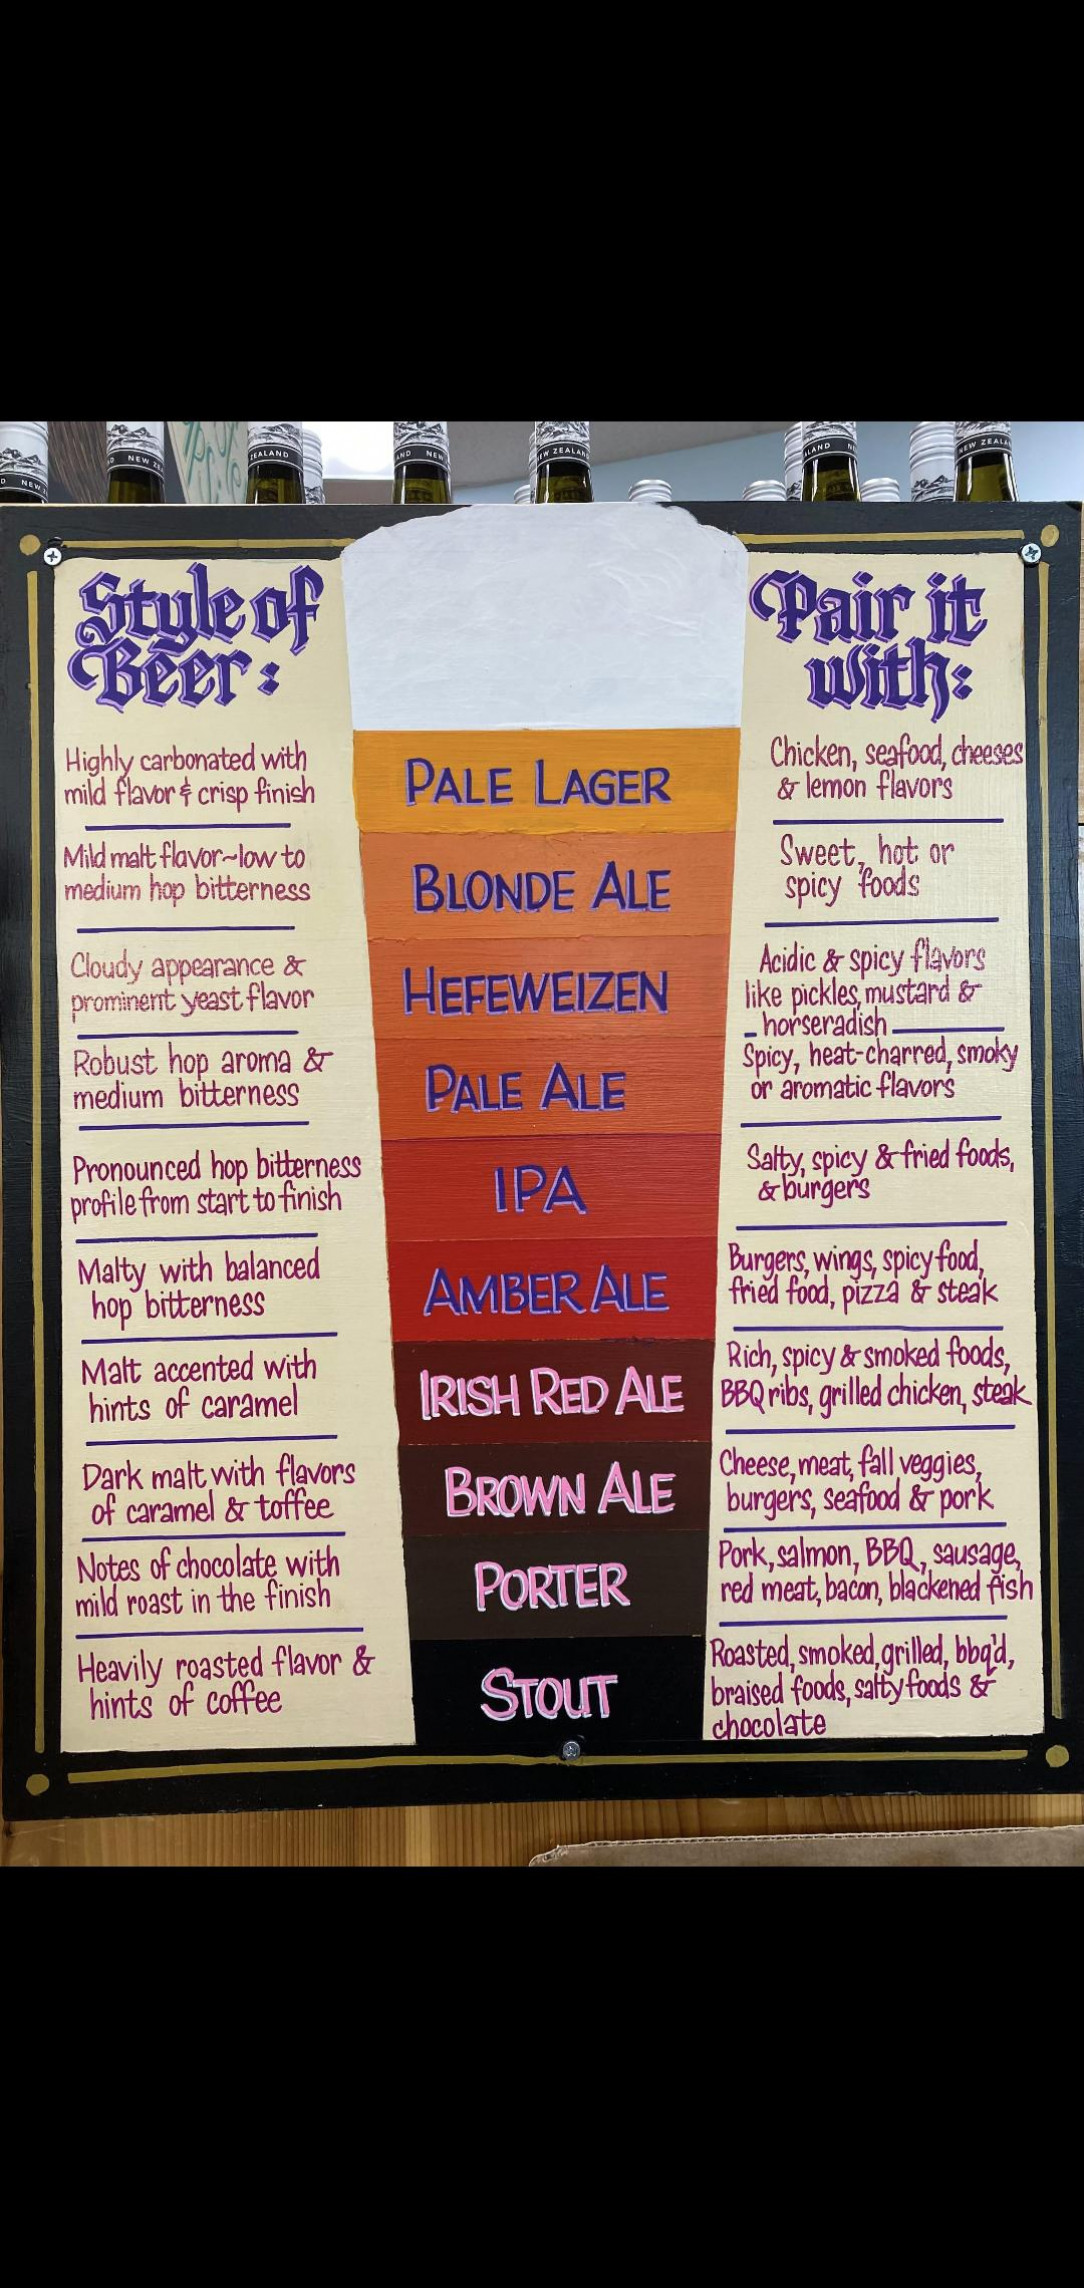 NEW ZEALAND
ZEALAND
AND NEW
NEW ZEALAND
ALAND NEW
NEW ZEALAND
Style of
Beer:
Pair it
with:
Highly carbonated with
mild flavor & crisp finish
PALE LAGER
Chicken, seafood, cheeses
& lemon flavors
Mild malt flavor~low to
medium hop bitterness
BLONDE ALE
Sweet, hot or
spicy foods
Cloudy appearance &
prominent yeast flavor
HEFEWEIZEN
Acidic & spicy flavors
like pickles, mustard &
horseradish
Robust hop aroma &
medium bitterness
PALE ALE
Spicy, heat-charred, smoky
or aromatic flavors
Pronounced hop bitterness
profile from start to finish
IPA
Salty, spicy & fried foods,
& burgers
Malty with balanced
hop bitterness
AMBER ALE
Burgers, wings, spicy food,
fried food, pizza & steak
Malt accented with
hints of caramel
IRISH RED ALE
Rich, spicy & smoked foods,
BBQ ribs, grilled chicken, steak
Dark malt with flavors
of caramel & toffee
BROWN ALE
Cheese, meat, fall veggies,
burgers, seafood & pork
Notes of chocolate with
mild roast in the finish
PORTER
Pork, salmon, BBQ, sausage,
red meat, bacon, blackened fish
Heavily roasted flavor &
hints of coffee
STOUT
Roasted, smoked, grilled, bbq'd,
braised foods, salty foods &
chocolate